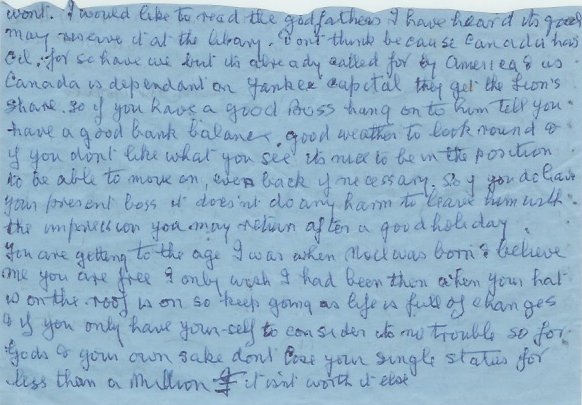 wont. I would like to read the godfathers I have heard its good
may reserve it at the library. Dont think because Canada has
oil, for so have we but its already called for by America & as
Canada is dependant on Yankee capital they get the Lion's
share. so if you have a good Boss hang on to him till you
have a good bank balance. good weather to look round &
if you dont like what you see its nice to be in the position
to be able to move on, even back if necessary. So if you do leave
your present boss it does'nt do any harm to leave him with
the impression you may return after a good holiday.
You are getting to the age I was when Noel was born & believe
me you are free I only wish I had been then when your hat
is on the roof is on so keep going as life is full of changes
& if you only have your-self to consider its no trouble so for
Gods & your own sake dont lose your single status for
less than a Million £ it isnt worth it else